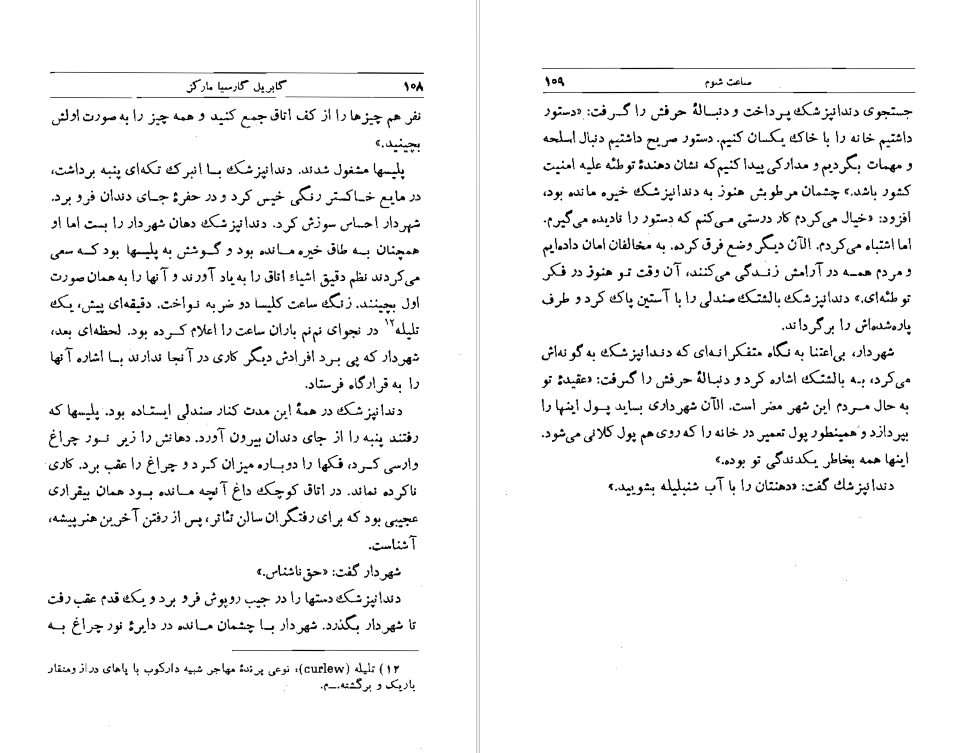 ۱۰۸ گابریل گارسیا مارکز
نفر هم چیزها را از کف اتاق جمع کنید و همه چیز را به صورت اولش
بچینید.»
پلیسها مشغول شدند. دندانپزشک بـا انبرک تکه‌ای پنبه برداشت،
در مایع خـاکستر رنگی خیس کرد و در حفرهٔ جـای دندان فرو برد.
شهردار احساس سوزش کرد. دندانپزشک دهان شهردار را بست اما او
همچنان بـه طاق خیره مـانده بود و گـوشش به پلیسها بود کـه سعی
می‌کردند نظم دقیق اشیاء اتاق را به یاد آورند و آنها را به همان صورت
اول بچینند. زنگ ساعت کلیسا دو ضربه نـواخت. دقیقه‌ای پیش، یک
تلیله۱۲ در نجوای نم‌نم باران ساعت را اعلام کـرده بود. لحظه‌ای بعد،
شهردار که پی برد افرادش دیگر کاری در آنجا ندارند بـا اشاره آنها
را به قرارگاه فرستاد.
دندانپزشک در همهٔ این مدت کنار صندلی ایستاده بود. پلیسها که
رفتند پنبه را از جای دندان بیرون آورد. دهانش را زیر نـور چراغ
وارسی کـرد، فکها را دوباره میزان کـرد و چراغ را عقب برد. کاری
ناکرده نماند. در اتاق کوچک داغ آنچه مـانده بـود همان بیقراری
عجیبی بود که برای رفتگران سالن تئاتر، پس از رفتن آخرین هنرپیشه،
آشناست.
شهردار گفت: «حق‌ناشناس.»
دندانپزشک دستها را در جیب روپوش فرو برد و یک قدم عقب رفت
تا شهردار بگذرد. شهردار بـا چشمان مـانده در دایرهٔ نور چراغ بـه
۱۲) تلیله (curlew): نوعی پرندهٔ مهاجر شبیه دارکوب با پاهای دراز و منقار
باریک و برگشته.ــ م.
ساعت شوم ۱۰۹
جستجوی دندانپزشک پرداخت و دنبـالهٔ حرفش را گـرفت: «دستور
داشتیم خانه را با خاک یکسان کنیم. دستور صریح داشتیم دنبال اسلحه
و مهمات بگردیم و مدارکی پیدا کنیم که نشان دهندهٔ توطئه علیه امنیت
کشور باشد.» چشمان مرطوبش هنوز به دندانپزشک خیره مانده بود،
افزود: «خیال می‌کردم کار درستی می‌کنم که دستور را نادیده می‌گیرم.
اما اشتباه می‌کردم. الآن دیگر وضع فرق کرده. به مخالفان امان داده‌ایم
و مردم همـه در آرامش زنـدگی می‌کنند، آن وقت تـو هنوز در فکر
توطئه‌ای.» دندانپزشک بالشتک صندلی را با آستین پاک کرد و طرف
پاره‌شده‌اش را برگرداند.
شهردار، بی‌اعتنا به نگاه متفکرانه‌ای که دندانپزشک به گونه‌اش
می‌کرد، بـه بالشتک اشاره کرد و دنبالهٔ حرفش را گرفت: «عقیدهٔ تو
به حال مـردم این شهر مضر است. الآن شهرداری بـاید پـول اینها را
بپردازد و همینطور پول تعمیر در خانه را که روی هم پول کلانی می‌شود.
اینها همه بخاطر یکدندگی تو بوده.»
دندانپزشک گفت: «دهنتان را با آب شنبلیله بشویید.»